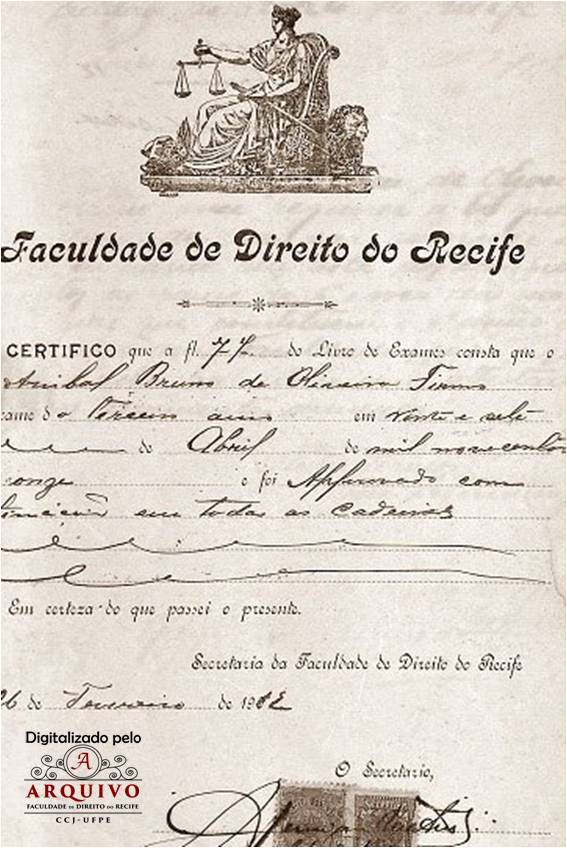 Faculdade de Direito do Recife
CERTIFICO que a fl. 77 do Livro de Exames consta que o
Anibal Bruno de Oliveira Firmo
xame do terceiro anno em vinte e sete
de Abril de mil novecentos
onze e foi Approvado com
tincção em todas as cadeiras
Em certeza do que passei o presente.
Secretaria da Faculdade de Direito do Recife
26 de Fevereiro de 1912
O Secretario,
Digitalizado pelo
A
ARQUIVO
FACULDADE DE DIREITO DO RECIFE
CCJ-UFPE